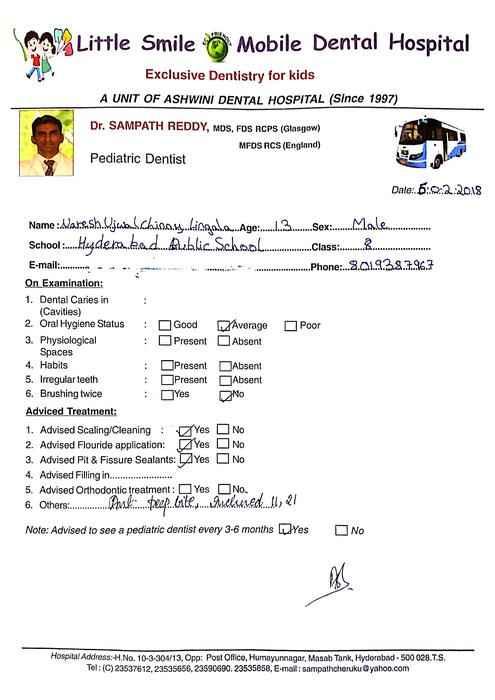 Little Smile Mobile Dental Hospital
Exclusive Dentistry for kids
A UNIT OF ASHWINI DENTAL HOSPITAL (Since 1997)
Dr. SAMPATH REDDY, MDS, FDS RCPS (Glasgow)
MFDS RCS (England)
Pediatric Dentist
Date: 5.02.2018
Name: Naresh Ujwal Chinay Lingala Age: 13 Sex: Male
School: Hyderabad Public School Class: 8
E-mail: Phone: 8019387967
On Examination:
1. Dental Caries in :
(Cavities)
2. Oral Hygiene Status : Good Average Poor
3. Physiological : Present Absent
Spaces
4. Habits : Present Absent
5. Irregular teeth : Present Absent
6. Brushing twice : Yes No
Adviced Treatment:
1. Advised Scaling/Cleaning : Yes No
2. Advised Flouride application: Yes No
3. Advised Pit & Fissure Sealants: Yes No
4. Advised Filling in
5. Advised Orthodontic treatment : Yes No
6. Others: deep bite, 11, 21
Note: Advised to see a pediatric dentist every 3-6 months Yes No
Hospital Address:-H.No. 10-3-304/13, Opp: Post Office, Humayunnagar, Masab Tank, Hyderabad - 500 028.T.S.
Tel : (C) 23537612, 23535656, 23590690. 23535858, E-mail : sampathcheruku@yahoo.com